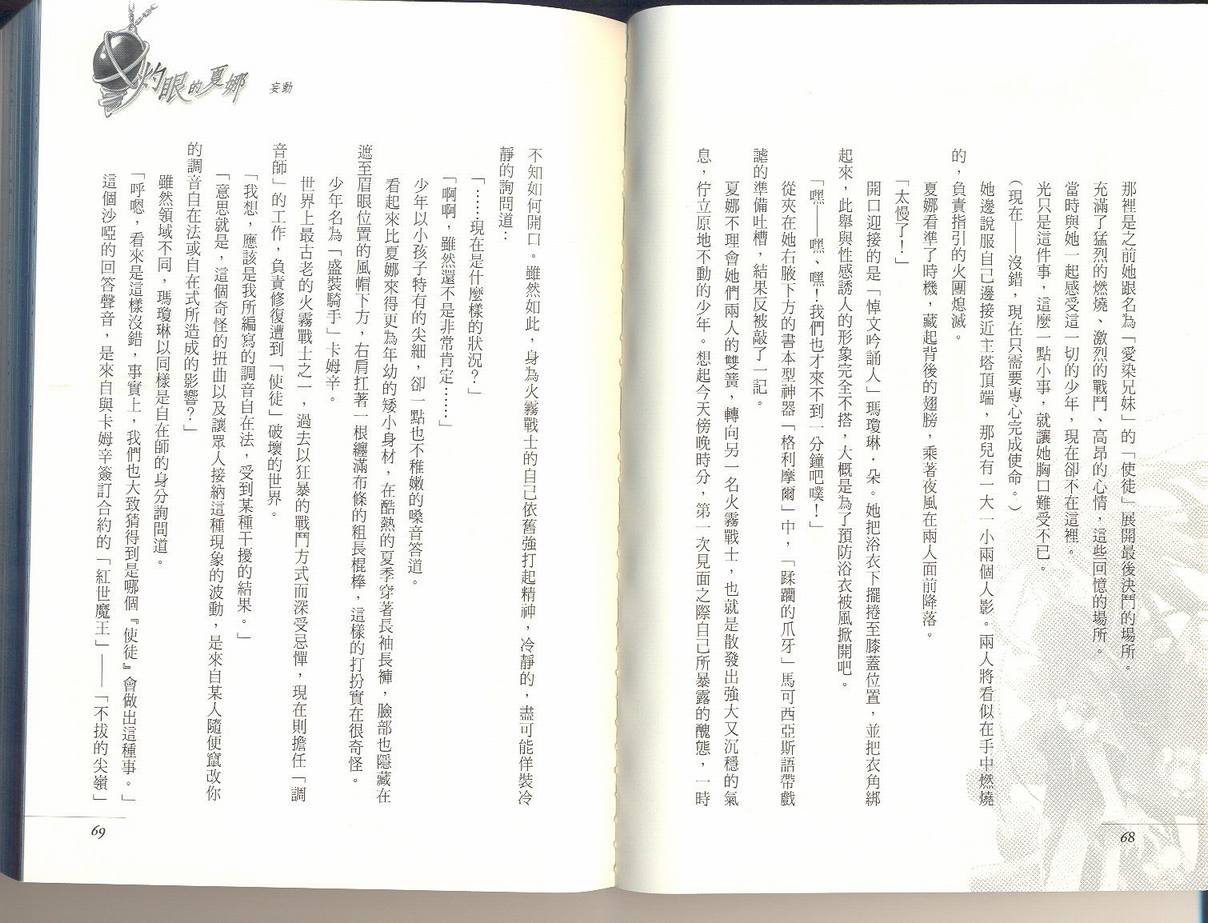 那裡是之前她跟名為「愛染兄妹」的「使徒」展開最後決鬥的場所。
充滿了猛烈的燃燒、激烈的戰鬥、高昂的心情，這些回憶的場所。
當時與她一起感受這一切的少年，現在卻不在這裡。
光只是這件事，這麼一點小事，就讓她胸口難受不已。
（現在——沒錯，現在只需要專心完成使命。）
她邊說服自己邊接近主塔頂端，那兒有一大一小兩個人影。兩人將看似在手中燃燒
的，負責指引的火團熄滅。
夏娜看準了時機，藏起背後的翅膀，乘著夜風在兩人面前降落。
「太慢了！」
開口迎接的是「悼文吟誦人」瑪瓊琳．朵。她把浴衣下擺捲至膝蓋位置，並把衣角綁
起來，此舉與性感誘人的形象完全不搭，大概是為了預防浴衣被風掀開吧。
「嘿——嘿、嘿！我們也才來不到一分鐘吧噗！」
從夾在她右腋下方的書本型神器「格利摩爾」中，「蹂躪的爪牙」馬可西亞斯語帶戲
謔的準備吐槽，結果反被敲了一記。
夏娜不理會她們兩人的雙簧，轉向另一名火霧戰士，也就是散發出強大又沉穩的氣
息，佇立原地不動的少年。想起今天傍晚時分，第一次見面之際自己所暴露的醜態，一時
68
灼眼的夏娜
妄動
不知如何開口。雖然如此，身為火霧戰士的自己依舊強打起精神，冷靜的，盡可能佯裝冷
靜的詢問道：
「……現在是什麼樣的狀況？」
「啊啊，雖然還不是非常肯定……」
少年以小孩子特有的尖細，卻一點也不稚嫩的嗓音答道。
看起來比夏娜來得更為年幼的矮小身材，在酷熱的夏季穿著長袖長褲，臉部也隱藏在
遮至眉眼位置的風帽下方，右肩扛著一根纏滿布條的粗長棍棒，這樣的打扮實在很奇怪。
少年名為「盛裝騎手」卡姆辛。
世界上最古老的火霧戰士之一，過去以狂暴的戰鬥方式而深受忌憚，現在則擔任「調
音師」的工作，負責修復遭到「使徒」破壞的世界。
「我想，應該是我所編寫的調音自在法，受到某種干擾的結果。」
「意思就是，這個奇怪的扭曲以及讓眾人接納這種現象的波動，是來自某人隨便竄改你
的調音自在法或自在式所造成的影響？」
雖然領域不同，瑪瓊琳以同樣是自在師的身分詢問道。
「呼嗯，看來是這樣沒錯，事實上，我們也大致猜得到是哪個『使徒』會做出這種事。」
這個沙啞的回答聲音，是來自與卡姆辛簽訂合約的「紅世魔王」——「不拔的尖嶺」
69